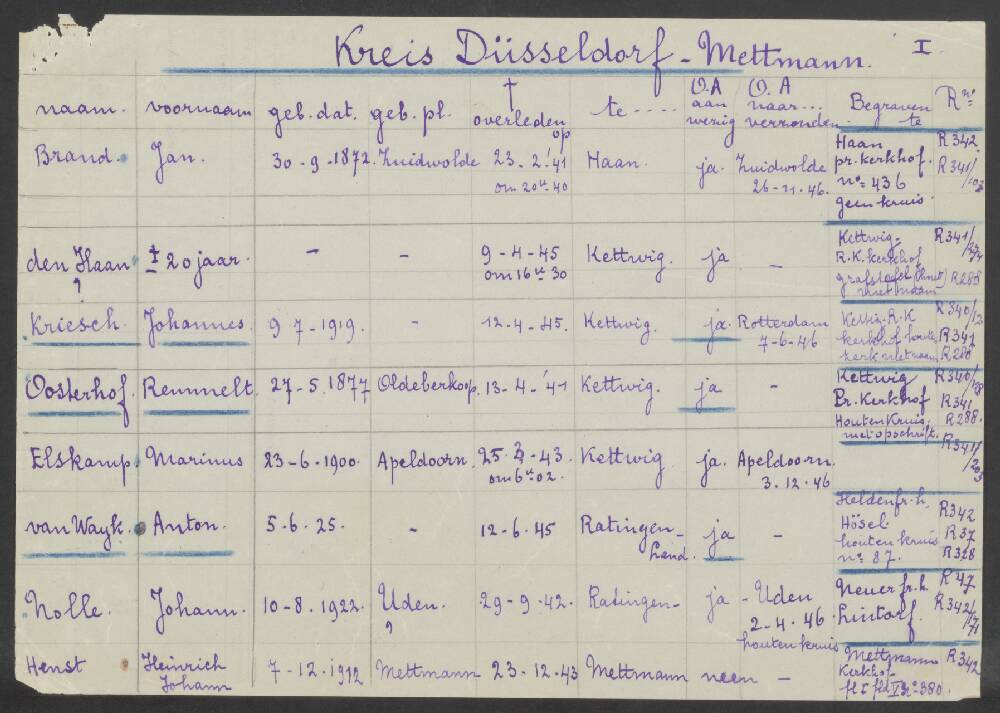 Kreis Düsseldorf - Mettmann. I
naam. voornaam geb. dat. geb. pl. † overleden op te ..... O.A aanwezig O.A naar... verzonden Begraven te R nr.
Brand. Jan. 30-9-1872. Zuidwolde 23-2-'41 Haan. ja. Zuidwolde Haan R342
om 20 u 40 26-11-46. pr. kerkhof. R341/
no= 436
geen kruis
den Haan ± 20 jaar. - - 9-4-45 Kettwig. ja - Kettwig- R341/
? om 16 u 30 R.K. kerkhof
R288
Kriesch. Johannes. 9-7-1919. - 12-4-45. Kettwig. ja. Rotterdam Kettwig. R.K R340/
7-6-46 kerkhof R341
R288
Oosterhof. Remmelt. 27-5-1877 Oldeberkoop. 13-4-'41 Kettwig. ja - Kettwig R340/
Pr. Kerkhof R341
Houten Kruis R288.
met opschrift.
Elskamp. Marinus 23-6-1900. Apeldoorn. 25-3-43. Kettwig. ja. Apeldoorn. R341/
om 6 u 02. 3.12.46
van Wayk. Anton. 5-6.25. - 12-6-45 Ratingen- ja - Heldenfr.h.
Land. Hösel R342
houten kruis R37
no 87. R328
Nolle. Johann. 10-8.1922. Uden. 29-9-42. Ratingen- ja - Uden Neuer fr.h. R47
? 2-4-46 Lintorf. R342/
houten kruis
Henst Heinrich 7-12-1912 Mettmann 23-12-43 Mettmann neen - Mettmann R342
Johann Kerkhof
fl I fld V No=380.